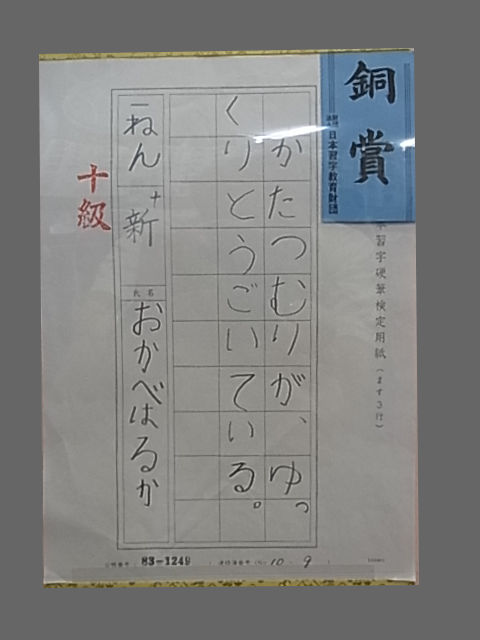 銅賞
財団法人
日本習字教育財団
習字硬筆検定用紙(ます3行)
かたつむりが、ゆっ
くりとうごいている。
一ねん
十新
氏名
おかべはるか
十級
83-1249
10 - 9